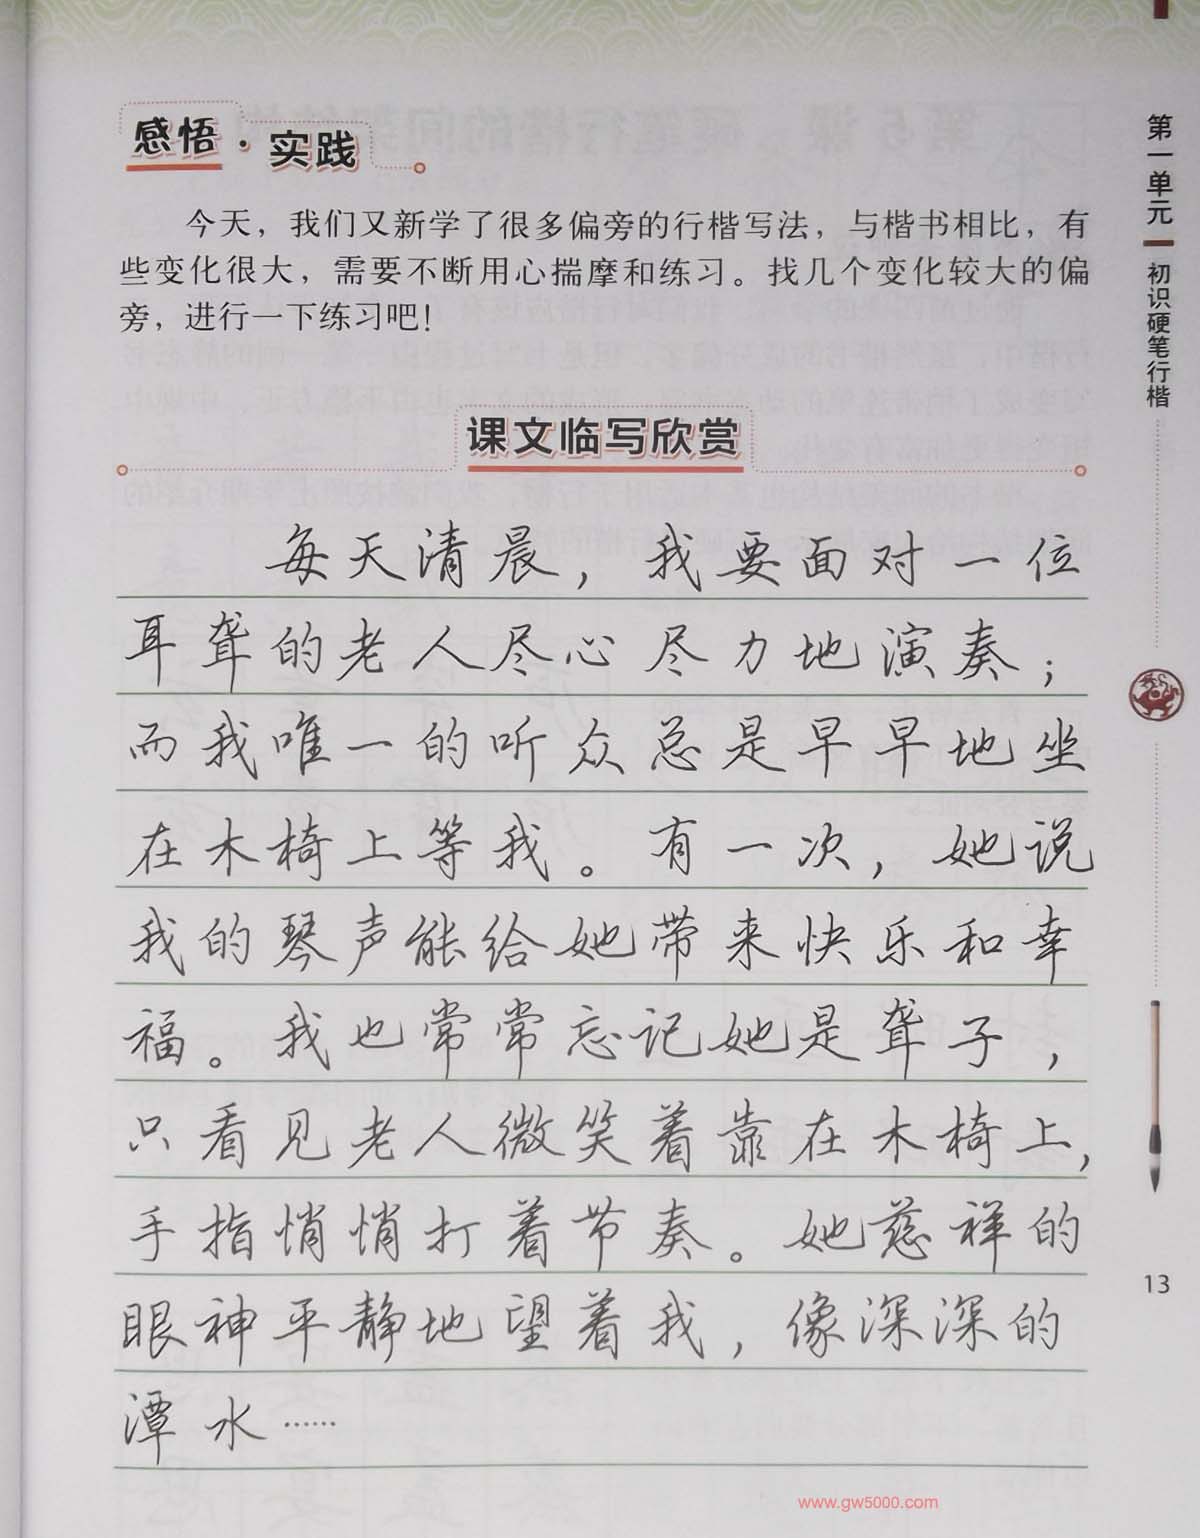 感悟·实践
今天，我们又新学了很多偏旁的行楷写法，与楷书相比，有
些变化很大，需要不断用心揣摩和练习。找几个变化较大的偏
旁，进行一下练习吧！
课文临写欣赏
每天清晨，我要面对一位
耳聋的老人尽心尽力地演奏；
而我唯一的听众总是早早地坐
在木椅上等我。有一次，她说
我的琴声能给她带来快乐和幸
福。我也常常忘记她是聋子，
只看见老人微笑着靠在木椅上，
手指悄悄打着节奏。她慈祥的
眼神平静地望着我，像深深的
潭水……
第一单元
初识硬笔行楷
13
www.gw5000.com